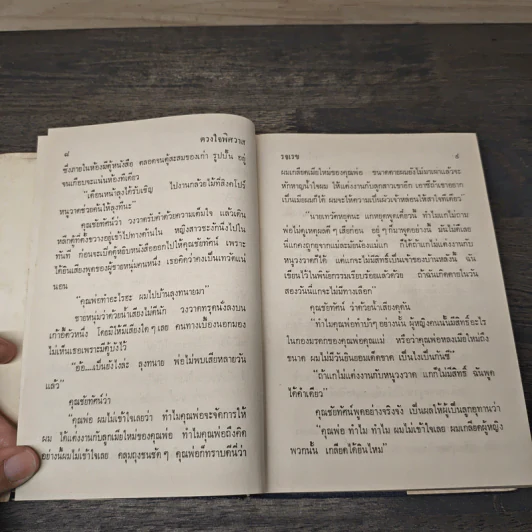 ๘
ดวงใจพิศวาส
ซึ่งภายในห้องมีตู้หนังสือ ตลอดจนตู้สะสมของเก่า รูปปั้น อยู่
จนเกือบจะแน่นห้องทีเดียว
"เดือนหน้าลุงได้รับเชิญ ไปงานกล้วยไม้ที่สิงคโปร์
หนูวาดช่วยค้นให้ลุงทีนะ"
คุณชัยทัศน์ว่า วงวาดรับคำด้วยความเต็มใจ แล้วเดิน
หลีกตู้ที่ตั้งขวางอยู่เข้าไปทางด้านใน หญิงสาวชะงักนิ่งไปใน
ทันที ก่อนจะเปิดตู้หยิบหนังสือออกไปให้คุณชัยทัศน์ เพราะ
ได้ยินเสียงพูดของผู้ชายหนุ่มคนหนึ่ง เธอคิดว่าคงเป็นเทวัคแน่
นอน
"คุณพ่อทำอะไรฮะ ผมไปบ้านลุงทนายมา"
ชายหนุ่มว่าด้วยน้ำเสียงไม่ดีนัก วงวาดทรุดนั่งลงบน
เก้าอี้ตัวหนึ่ง โดยมิให้มีเสียงใด ๆ เลย คนทางเบื้องนอกมอง
ไม่เห็นเธอเพราะมีตู้บังไว้
"อ้อ...เป็นยังไงล่ะ ลุงทนาย พ่อไม่พบเสียหลายวัน
แล้ว"
คุณชัยทัศน์ว่า
"คุณพ่อ ผมไม่เข้าใจเลยว่า ทำไมคุณพ่อจะจัดการให้
ผม ได้แต่งงานกับลูกเมียใหม่ของคุณพ่อ ทำไมคุณพ่อถึงคิด
อย่างนี้ผมไม่เข้าใจเลย คลุมถุงชนชัด ๆ คุณพ่อก็ทราบดีนี่ว่า
รจเรข
๙
ผมเกลียดเมียใหม่ของคุณพ่อ ขนาดตายผมยังไม่เผาเผาแล้วจะ
หักหาญน้ำใจผม ให้แต่งงานกับลูกสาวเขาอีก เอาซีถ้าเขาอยาก
เป็นเมียผมก็ได้ ผมจะให้ความเป็นผัวเจ้าหล่อนให้สาใจทีเดียว"
"นายเทวัคหยุดนะ แกหยุดพูดเดี๋ยวนี้ ทำไมแกไม่ถาม
พ่อไม่ดูเหตุผลดี ๆ เสียก่อน อยู่ ๆ ก็มาพูดอย่างงี้ มันไม่ดีเลย
นี่แกคงถูกยุจากแม่และน้องของแม่แก ก็ได้ถ้าแกไม่แต่งงานกับ
หนูวงวาดก็ได้ แต่แกจะไม่มีสิทธิ์เป็นเจ้าของบ้านหลังนี้ ฉัน
เขียนไว้ในพินัยกรรมเรียบร้อยแล้วด้วย ถ้าฉันเกิดตายในวัน
สองวันนี่แกจะไม่มีทางเลือก"
คุณชัยทัศน์ ว่าด้วยน้ำเสียงดุดัน
"ทำไมคุณพ่อทำบ้าๆ อย่างนั้น ผู้หญิงคนนั้นมีสิทธิ์อะไร
ในกองมรดกของคุณพ่อคุณแม่ หรือว่าคุณพ่อหลงเมียใหม่ถึง
ขนาด ผมไม่มีวันยินยอมเด็ดขาด เป็นไงเป็นกันซี"
"ถ้าแกไม่แต่งงานกับหนูวงวาด แกก็ไม่มีสิทธิ์ ฉันพูด
ได้คำเดียว"
คุณชัยทัศน์พูดอย่างจริงจัง เป็นผลให้ผู้เป็นลูกอุทานว่า
"คุณพ่อ ทำไม ทำไม ผมไม่เข้าใจเลย ผมเกลียดผู้หญิง
พวกนั้น เกลียดได้ยินไหม"